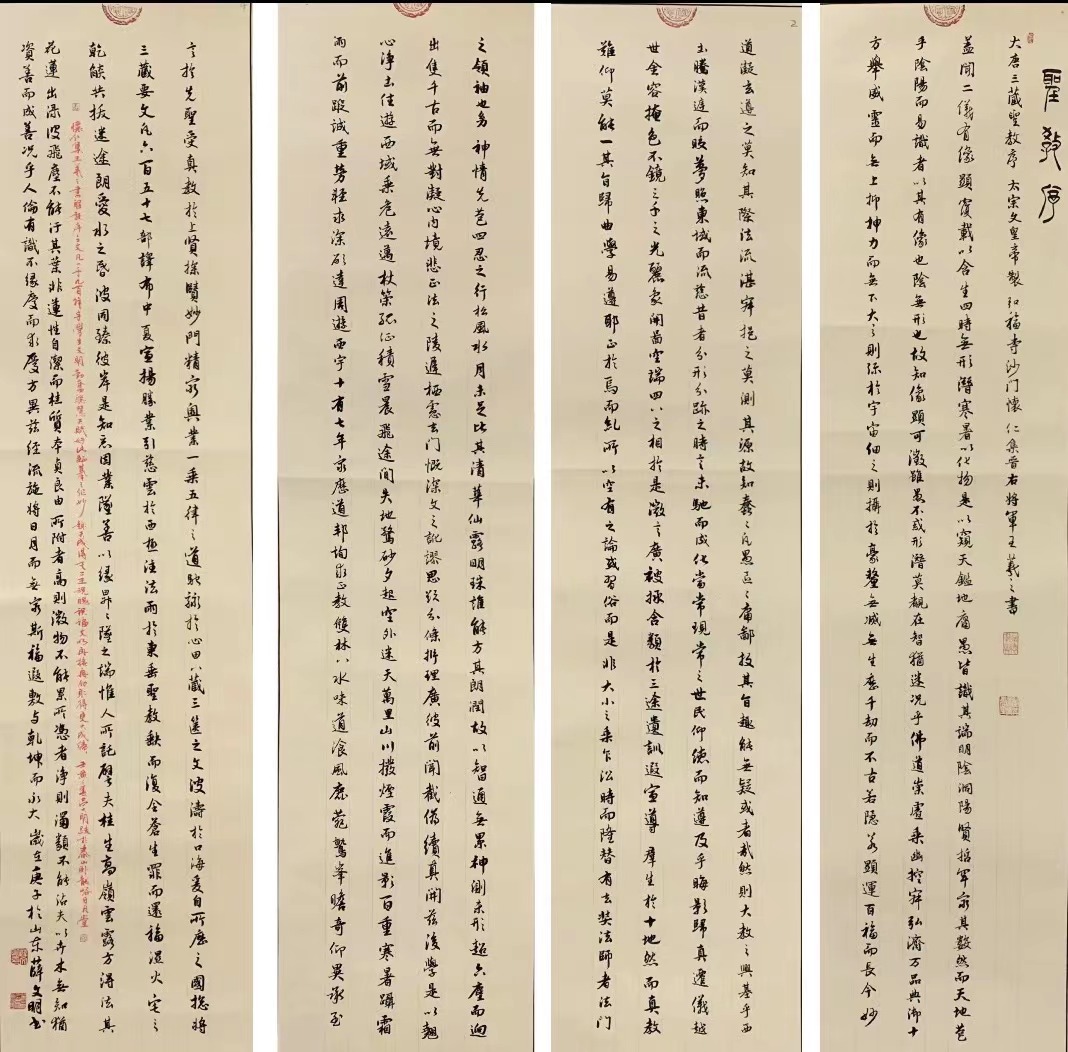 聖教序
大唐三藏聖教序 太宗文皇帝製 弘福寺沙門懷仁集晉右將軍王羲之書
蓋聞二儀有像顯覆載以含生四時無形潛寒暑以化物是以窺天鑑地庸愚皆識其端明陰洞陽賢哲罕窮其數然而天地苞
乎陰陽而易識者以其有像也陰無形也故知像顯可徵雖愚不惑形潛莫覩在智猶迷況乎佛道崇虛乘幽控寂弘濟万品典御十
方舉威靈而無上抑神力而無下大之則弥於宇宙細之則攝於豪釐無滅無生歷千劫而不古若隱若顯運百福而長今妙
2
道凝玄遵之莫知其際法流湛寂挹之莫測其源故知蠢蠢凡愚區區庸鄙投其旨趣能無疑或者哉然則大教之興基乎西
土騰漢庭而皎夢照東域而流慈昔者分形分跡之時言未馳而成化當常現常之世民仰德而知遵及乎晦影歸真遷儀越
世金容掩色不鏡三千之光麗象開圖空端四八之相於是微言廣被拯含類於三途遺訓遐宣導群生於十地然而真教
難仰莫能一其旨歸曲學易遵耶正於焉而紛所以空有之論或習俗而是非大小之乘乍沿時而隆替有玄奘法師者法門
之領袖也神情先苞四忍之行松風水月未足比其清華仙露明珠詎能方其朗潤故以智通無累神測未形超六塵而迥
出隻千古而無對凝心內境悲正法之陵遲栖慮玄門慨深文之訛謬思欲分條析理廣彼前聞截偽續真開茲後學是以翹
心淨土往遊西域乘危遠邁杖策孤征積雪晨飛途間失地驚砂夕起空外迷天萬里山川撥煙霞而進影百重寒暑躡霜
雨而前蹤誠重勞輕求深願達周遊西宇十有七年窮歷道邦詢求正教雙林八水味道湌風鹿菀鷲峯瞻奇仰異承至
言於先聖受真教於上賢探賾妙門精窮奧業一乘五律之道馳驟於心田八藏三篋之文波濤於口海爰自所歷之國揔將
三藏要文凡六百五十七部譯布中夏宣揚勝業引慈雲於西極注法雨於東垂聖教缺而復全蒼生罪而還福濕火宅之
乾焰共拔迷途朗愛水之昏波同臻彼岸是知惡因業墜善以緣昇昇墜之端惟人所託譬夫桂生高嶺雲露方得泫其
花蓮出淥波飛塵不能汙其葉非蓮性自潔而桂質本貞良由所附者高則微物不能累所憑者淨則濁類不能沾夫以卉木無知猶
資善而成善況乎人倫有識不緣慶而求慶方冀茲經流施將日月而無窮斯福遐敷与乾坤而永大 歲在庚子於山東薛文明書